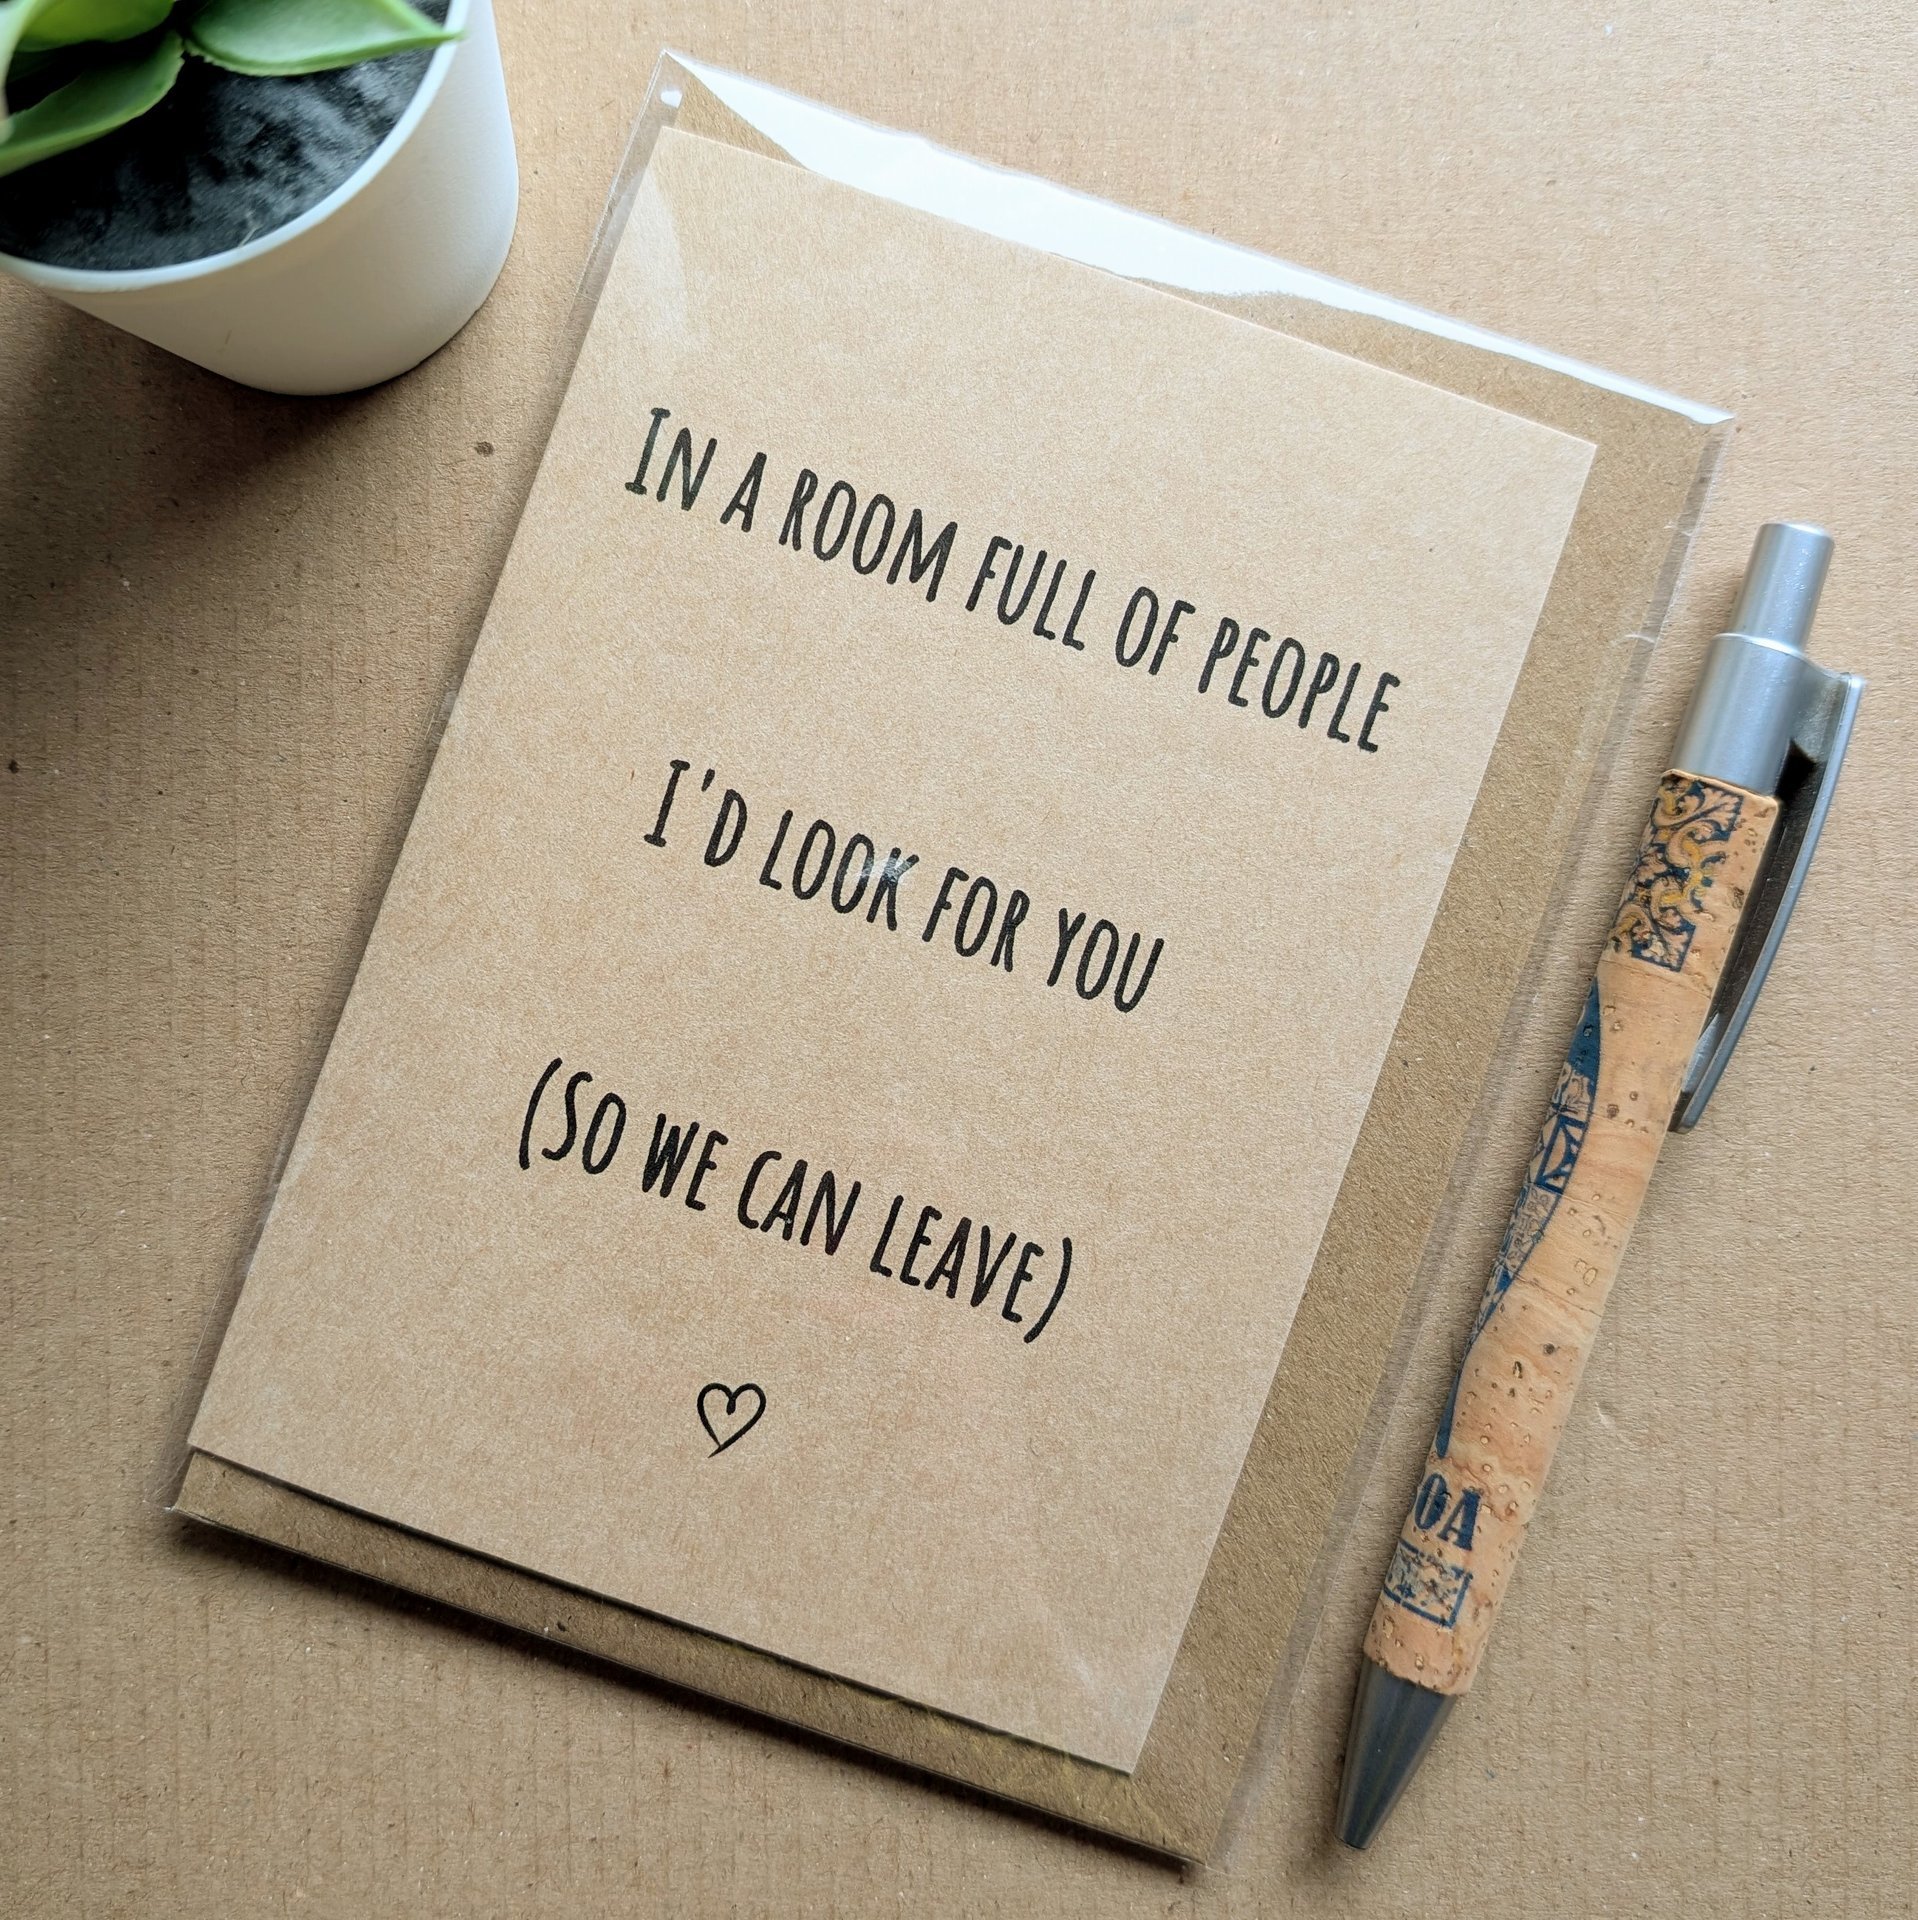 In a room full of people
I'd look for you
(So we can leave)
OA